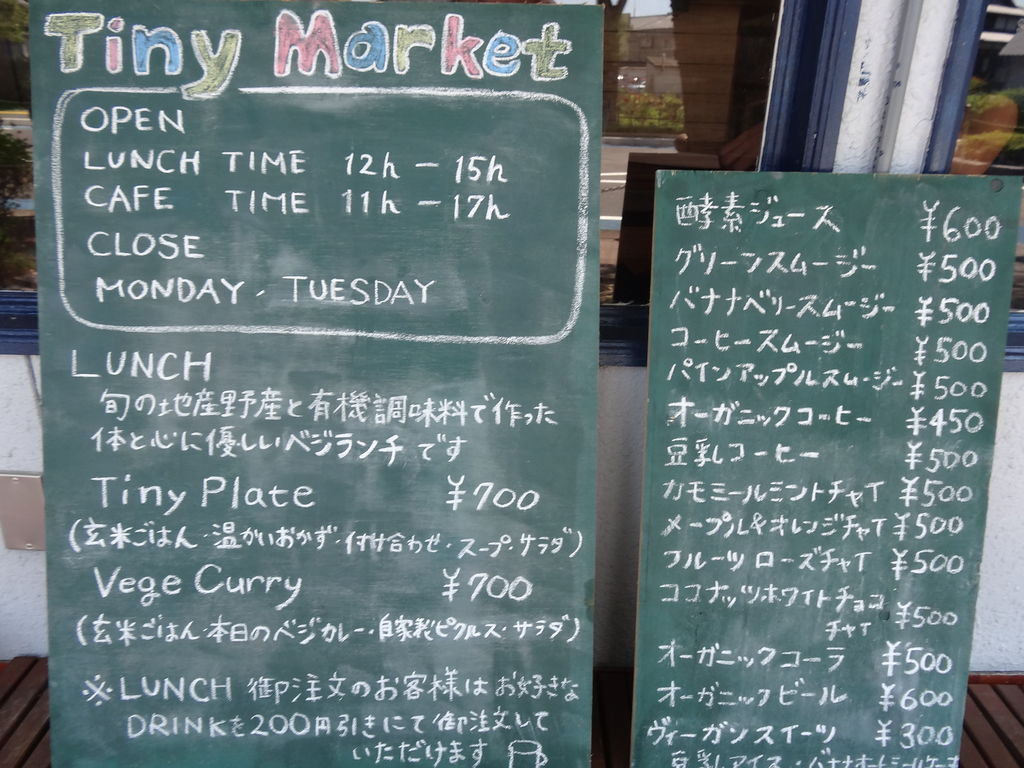 Tiny Market
OPEN
LUNCH TIME 12h - 15h
CAFE TIME 11h - 17h
CLOSE
MONDAY . TUESDAY
LUNCH
旬の地産野産と有機調味料で作った
体と心に優しいベジランチです
Tiny Plate ¥700
(玄米ごはん・温かいおかず・付け合わせ・スープ・サラダ)
Vege Curry ¥700
(玄米ごはん・本日のベジカレー・自家製ピクルス・サラダ)
※LUNCH 御注文のお客様はお好きな
DRINKを200円引きにて御注文して
いただけます
酵素ジュース ¥600
グリーンスムージー ¥500
バナナベリースムージー ¥500
コーヒースムージー ¥500
パインアップルスムージー ¥500
オーガニックコーヒー ¥450
豆乳コーヒー ¥500
カモミールミントチャイ ¥500
メープル&オレンジチャイ ¥500
フルーツローズチャイ ¥500
ココナッツホワイトチョコ
チャイ ¥500
オーガニックコーラ ¥500
オーガニックビール ¥600
ヴィーガンスイーツ ¥300
豆乳アイス・バナナオートミールケーキ